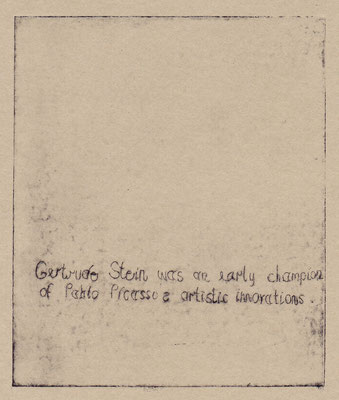 Gertrude Stein was an early champion
of Pablo Picasso's artistic innovations.